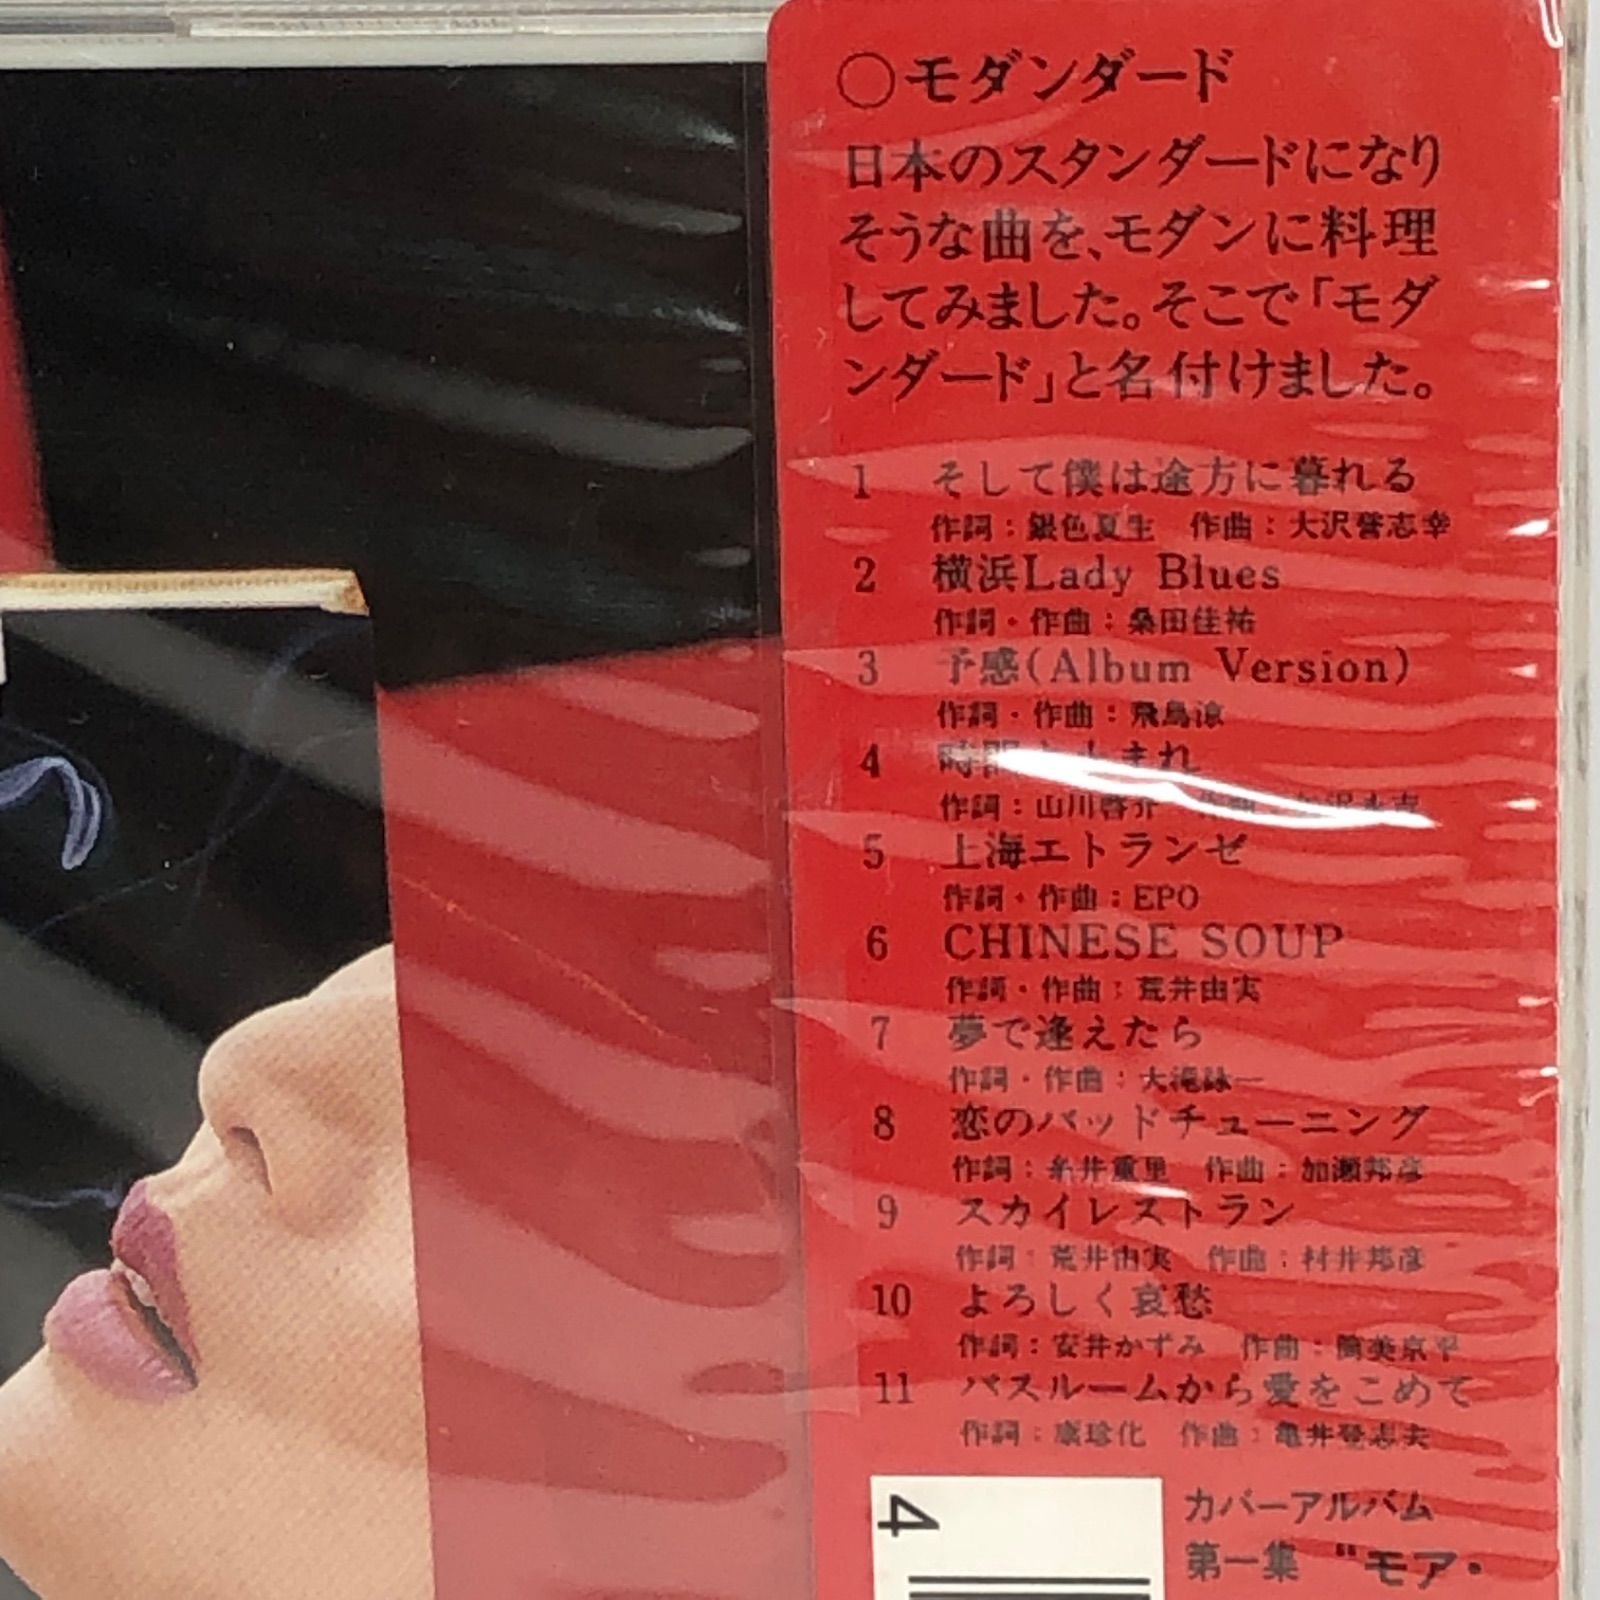 ○モダンダード
日本のスタンダードになり
そうな曲を、モダンに料理
してみました。そこで「モダ
ンダード」と名付けました。
1 そして僕は途方に暮れる
作詞：銀色夏生 作曲：大沢誉志幸
2 横浜Lady Blues
作詞・作曲：桑田佳祐
3 予感(Album Version)
作詞・作曲：飛鳥涼
4 時間よ止まれ
作詞：山川啓介 作曲：矢沢永吉
5 上海エトランゼ
作詞・作曲：EPO
6 CHINESE SOUP
作詞・作曲：荒井由実
7 夢で逢えたら
作詞・作曲：大滝詠一
8 恋のバッドチューニング
作詞：糸井重里 作曲：加瀬邦彦
9 スカイレストラン
作詞：荒井由実 作曲：村井邦彦
10 よろしく哀愁
作詞：安井かずみ 作曲：筒美京平
11 バスルームから愛をこめて
作詞：康珍化 作曲：亀井登志夫
カバーアルバム
第一集 "モア・
4